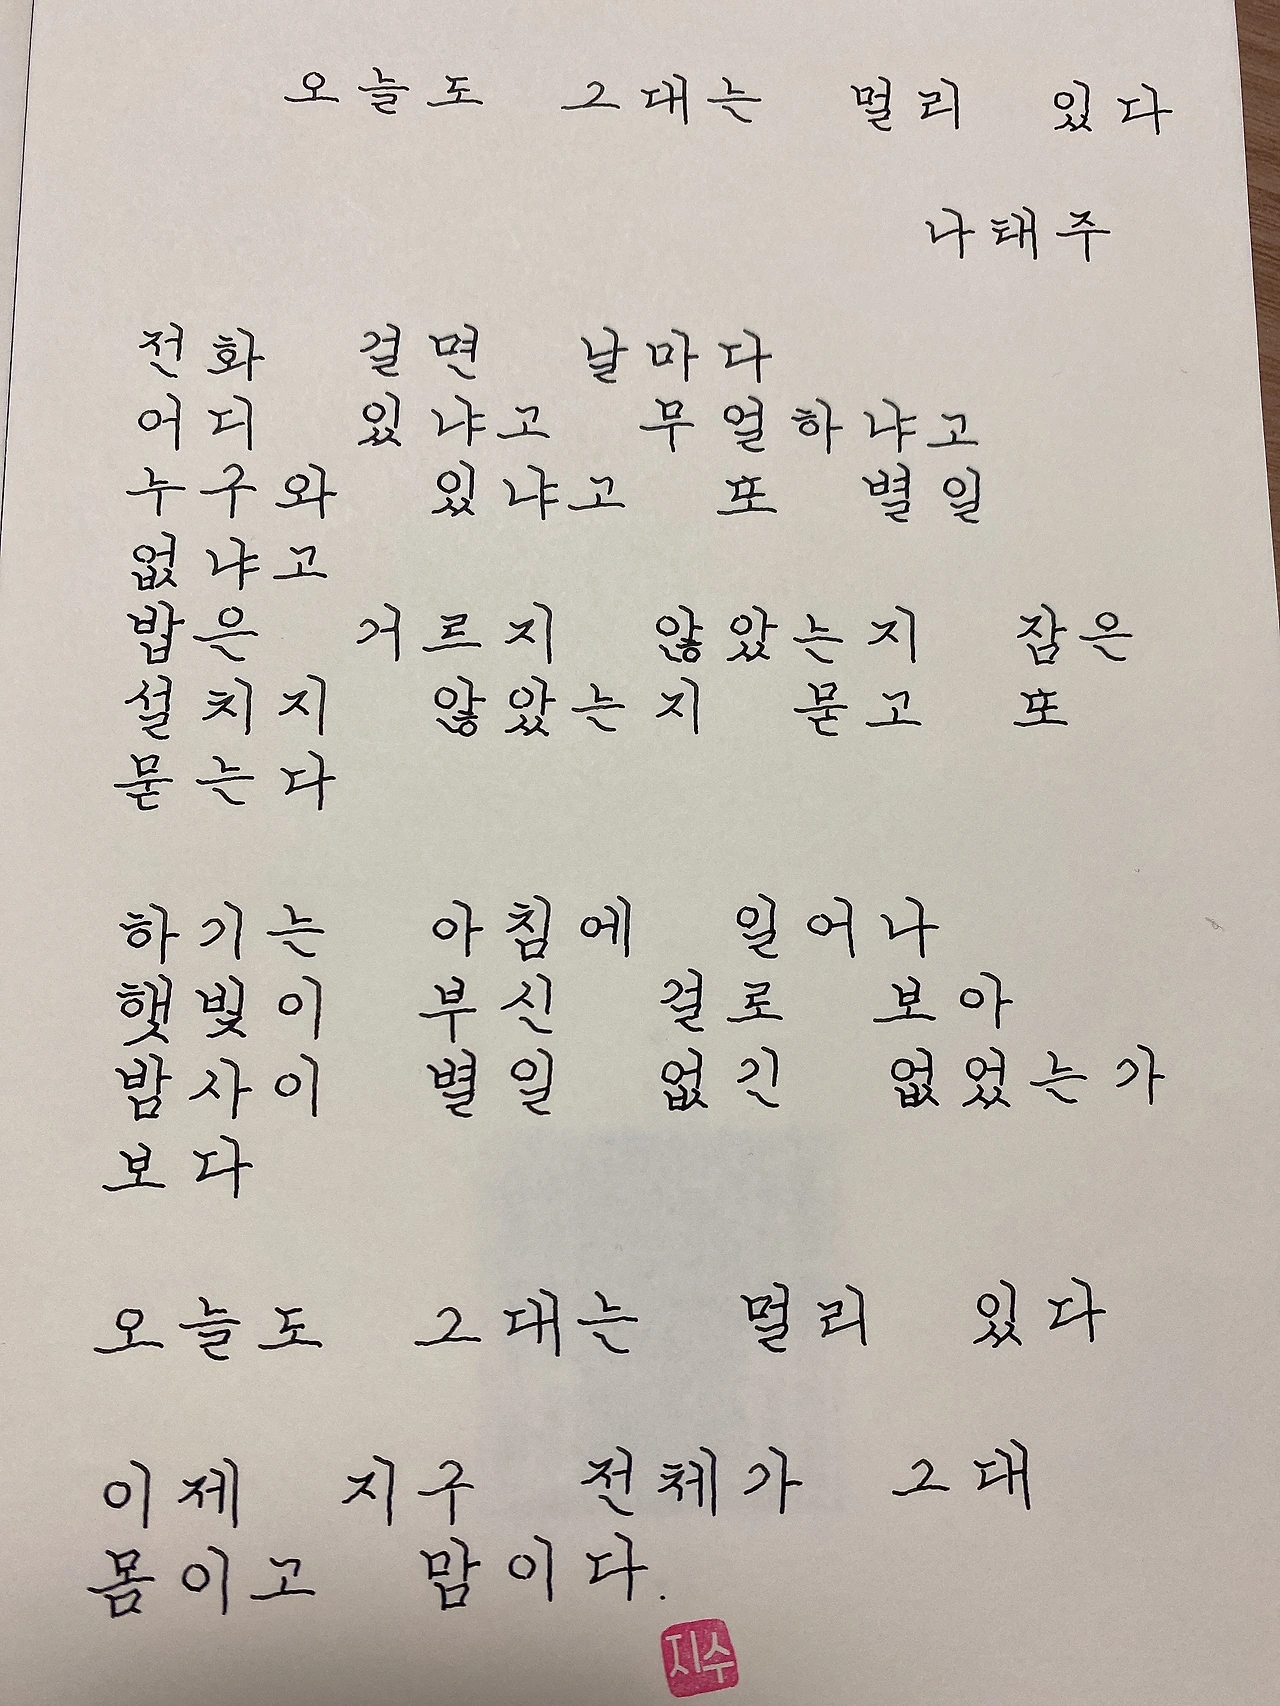 오늘도 그대는 멀리 있다
나태주
전화 걸면 날마다
어디 있냐고 무얼하냐고
누구와 있냐고 또 별일
없냐고
밥은 거르지 않았는지 잠은
설치지 않았는지 묻고 또
묻는다
하기는 아침에 일어나
햇빛이 부신 걸로 보아
밤사이 별일 없긴 없었는가
보다
오늘도 그대는 멀리 있다
이제 지구 전체가 그대
몸이고 맘이다.
지수